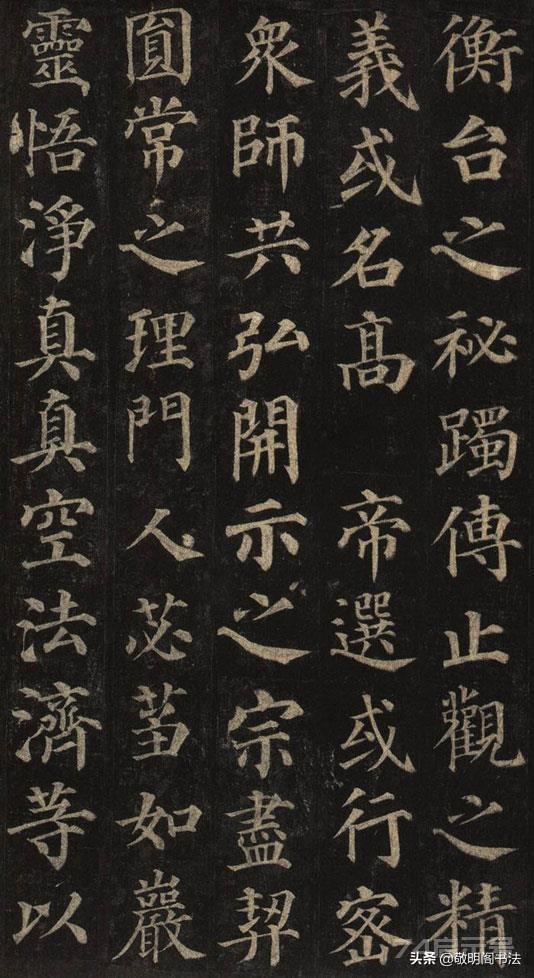 衡台之祕躅傳止觀之精
義或名高 帝選或行密
衆師共弘開示之宗盡契
圓常之理門人苾蒭如巖
靈悟淨真真空法濟等以
头条 @敬明阁书法